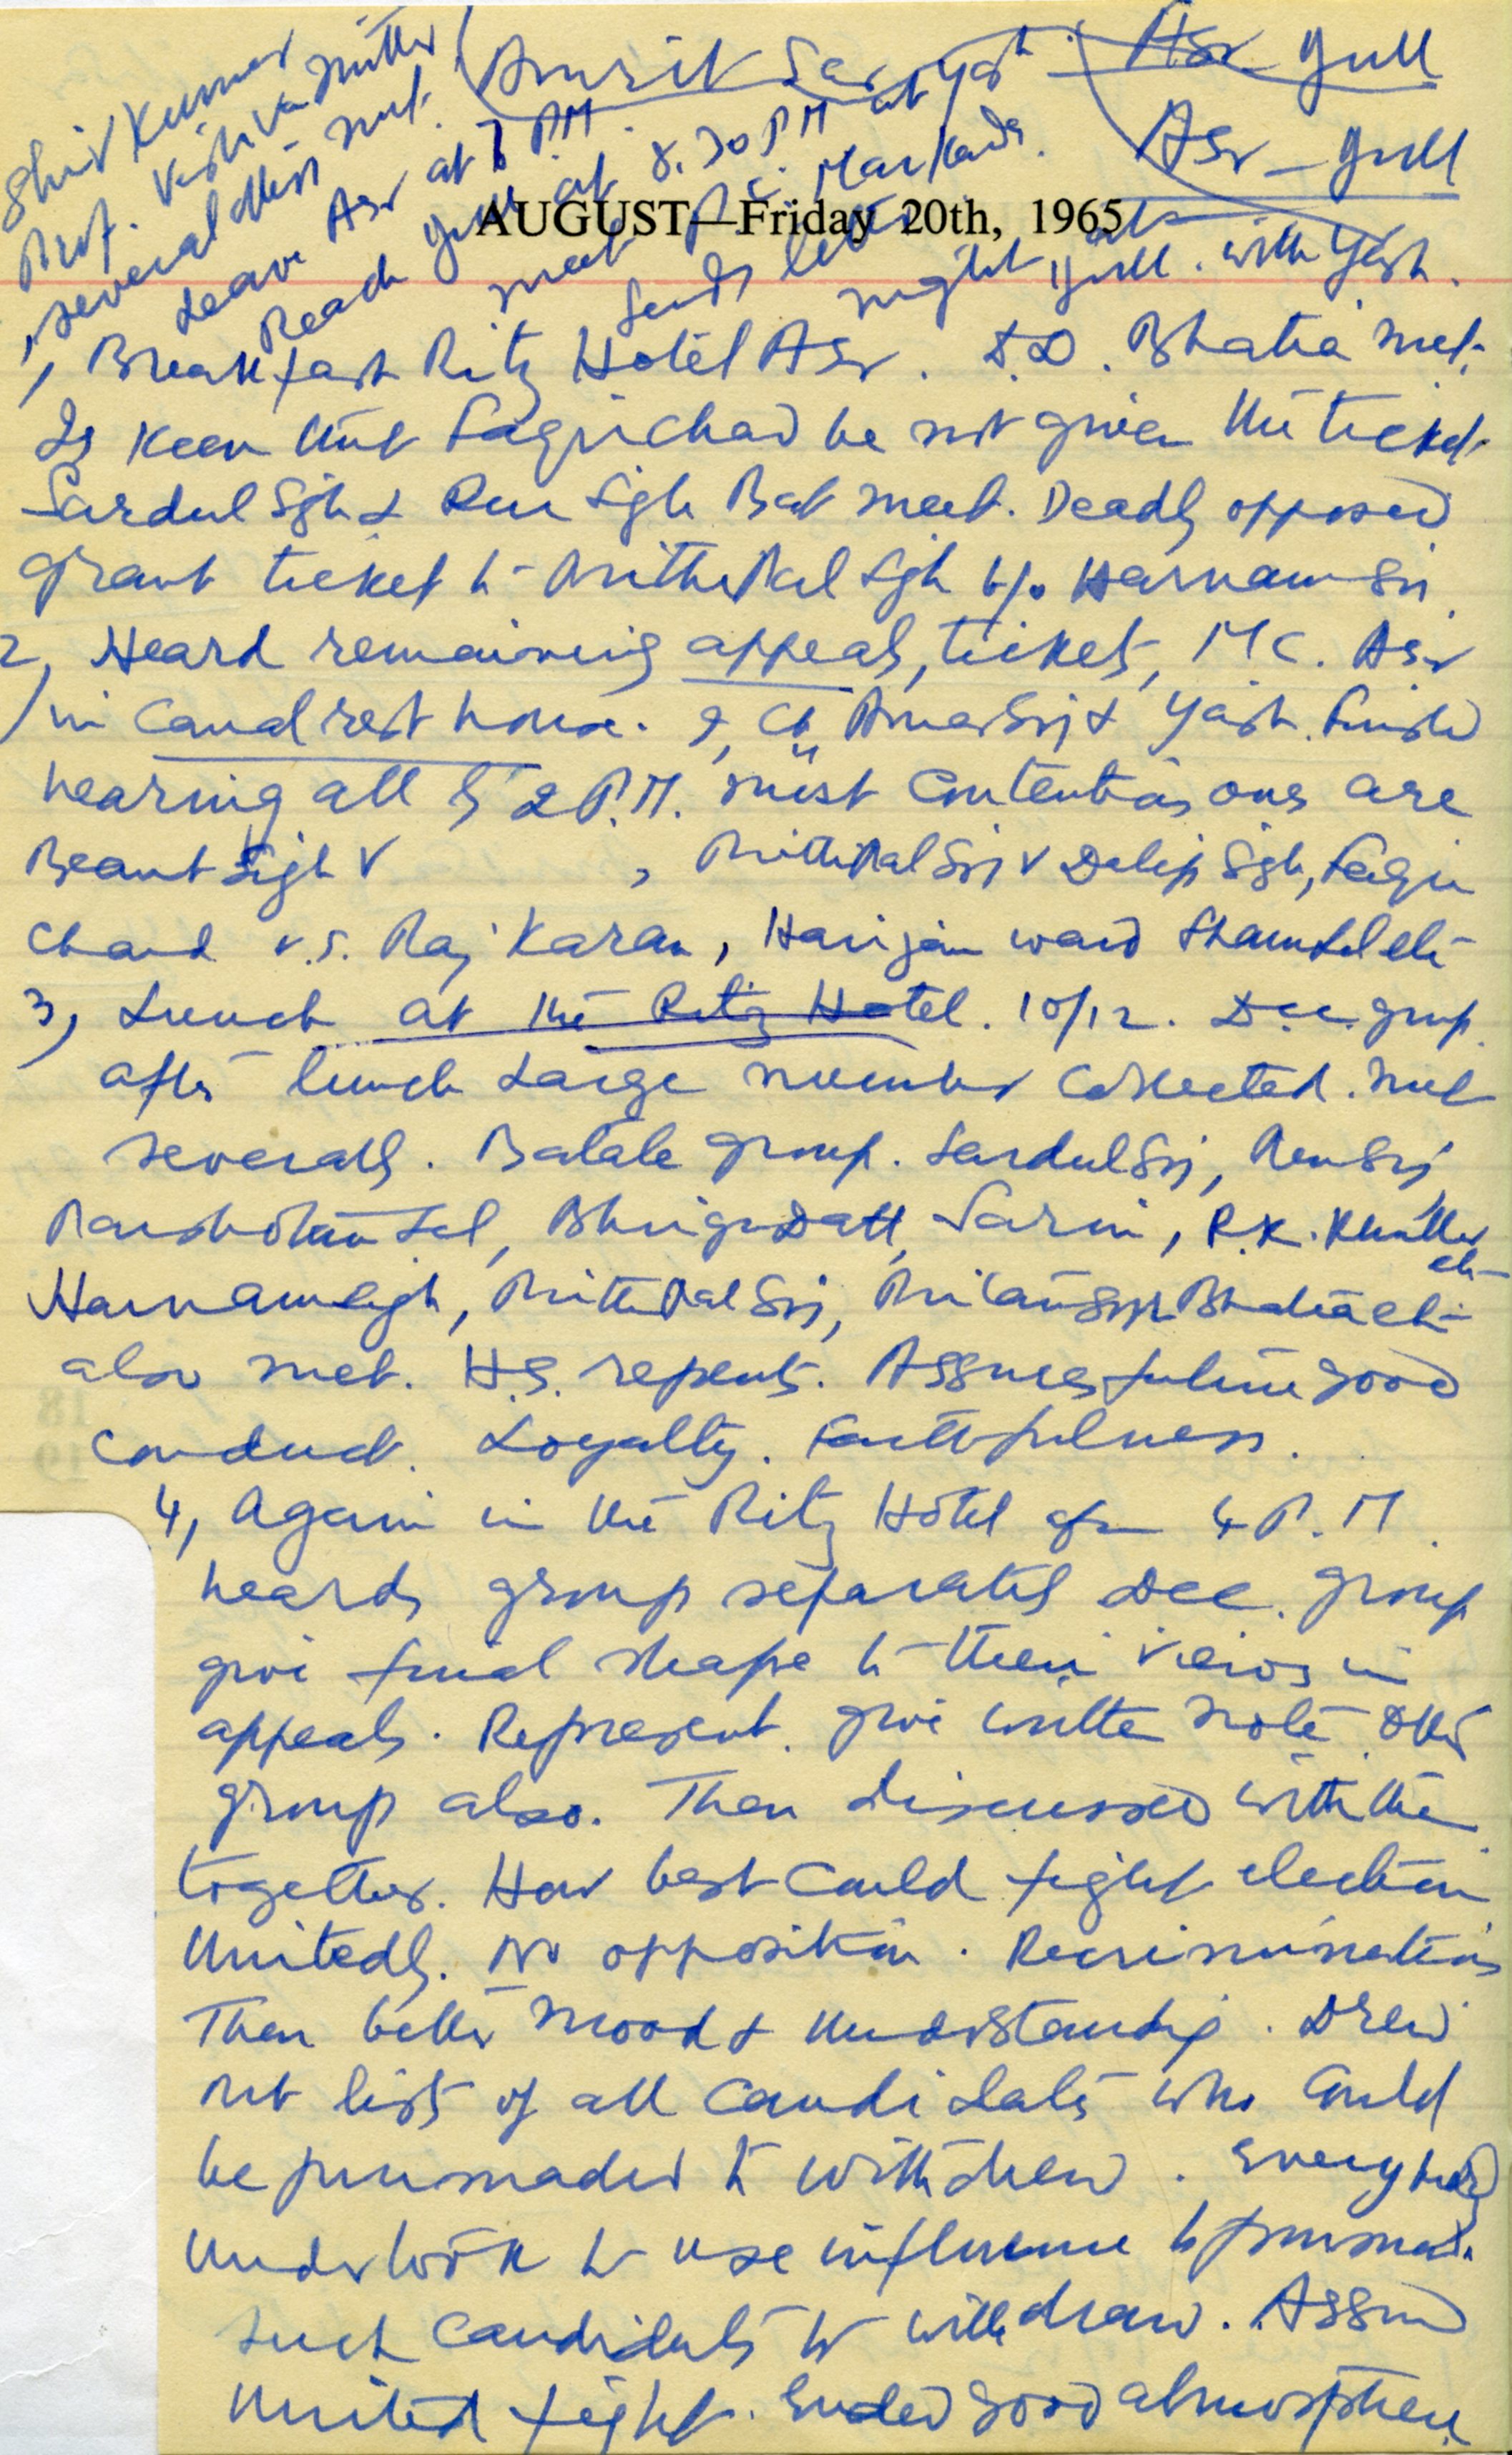 Amritsar Yash Asr Jull
Asr - Jull
Shiv Kumar
Prof. Vishva Mitter
several others met.
Leave Asr at 7 PM
Reach Jull at 8.30 PM at Yash
meet P.C. Markanda.
Sends letter
night at Jull. with Yash.
AUGUST—Friday 20th, 1965
1, Breakfast Ritz Hotel Asr. D.D. Bhatia met.
Is keen that Faqirchad be not given the ticket
Sardul Sgh & Sgh Bat meet. Deadly opposed
grant ticket to PrithiPal Sgh b/o Harnam Sri.
2, Heard remaining appeals, tickets, MC. Asr
in Canal rest house. I, Ch AmarSrj & Yash. Finished
hearing all by 2 P.M. most contentious ones are
Beant Sigh V , PrithiPal Srj V Dalip Sgh, Faqir
Chand v.s. Raj Karan, Harijan ward ShamLal etc
3, Lunch at the Ritz Hotel. 10/12. Dcc. group.
after lunch Large number collected. met
severally. Batale group. SardulSrj, RamSrj
Lal, BhriguDatt, Sarin, R.K. Khullar
etc
Harnamsigh, PrithiPal Srj, Bhatia etc
also met. H.S. repents. Assures future good
conduct. Loyalty. Faithfulness.
4, Again in the Ritz Hotel from 4 P.M.
heards group separately Dcc. group
give final shape to their views in
appeals. Represent. give written note. Other
group also. Then discussed with them
together. How best could fight election
Unitedly. No opposition. Recriminations
Then better mood & understanding. Drew
out lists of all candidates who could
be pursuaded to withdrew. Everybody
undertook to use influence to pursuade
such candidates to withdraw. Assured
united fight. Ended good atmosphere